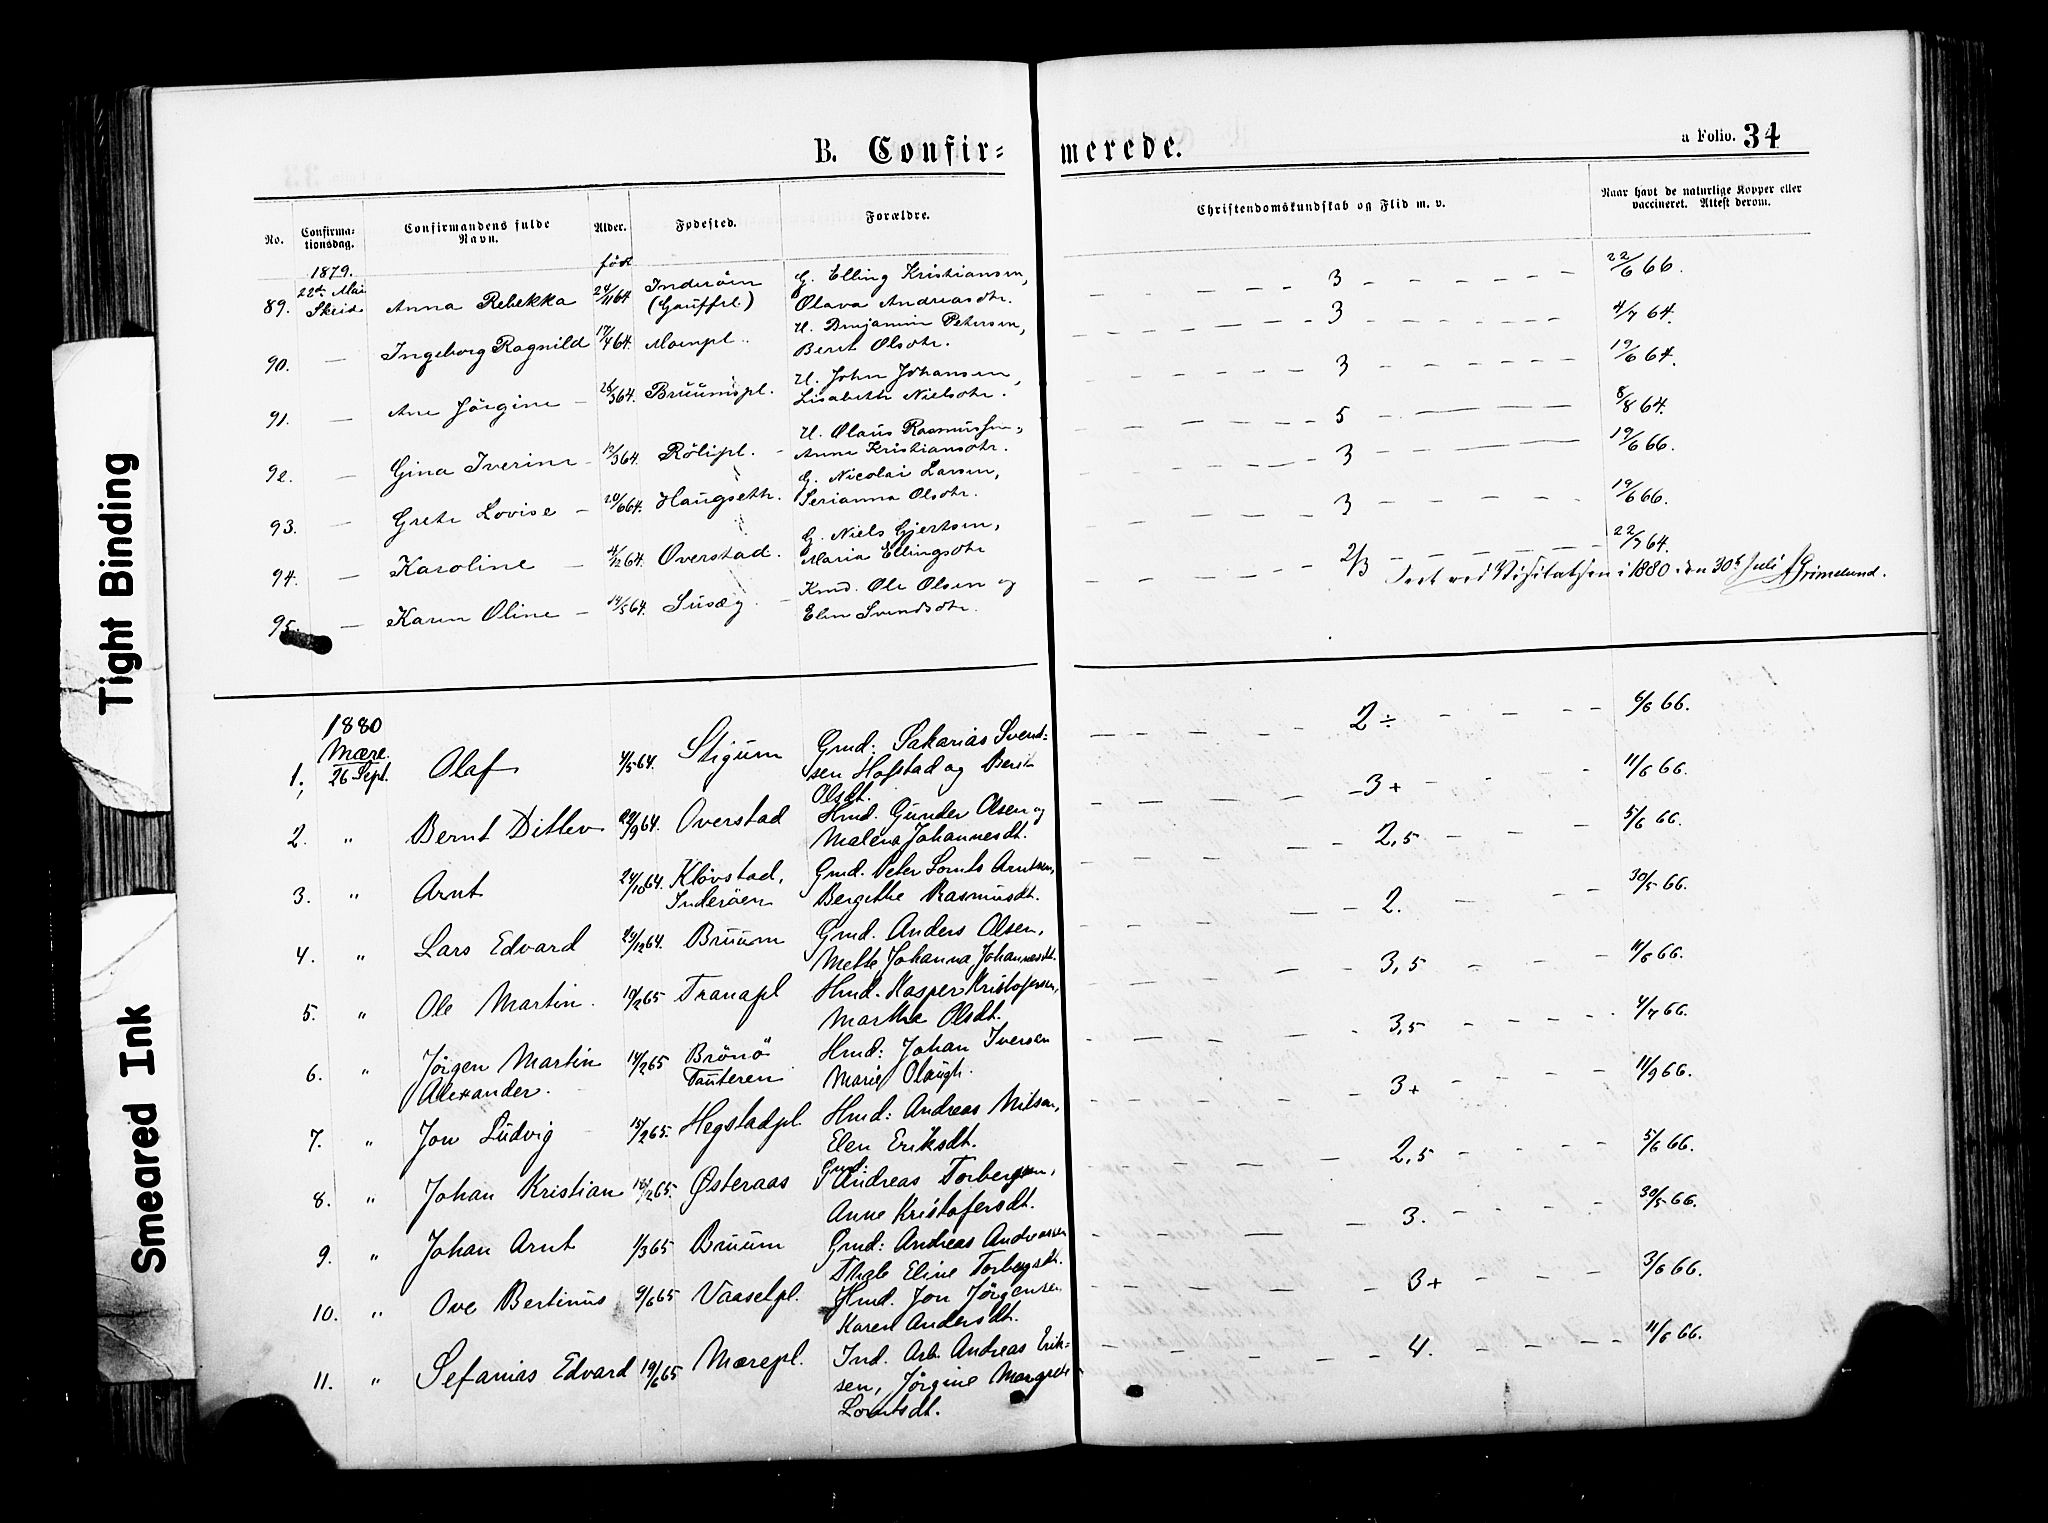 Tight Binding
Smeared Ink
B. Confir=
merede.
a Folio. 34
No.
Confirma-
tionsdag.
Confirmandens fulde
Navn.
Alder.
Fødested.
Forældre.
Christendomskundskab og Flid m. v.
Naar havt de naturlige Kopper eller
vaccineret. Attest derom.
1879.
født
89. 22de Mai Anna Rebekka 24/11 64 Inderöen G. Elling Kristiansen, 3 22/6 66.
Skeid (Gaufferl) Olava Andreasdtr.
90. — Ingeborg Ragnild 17/4 64. Moenpl. U. Benjamin Petersen, 3 4/7 64.
Berit Olsdtr.
91. — Ane Jörgine 26/3 64. Bruumspl. U. John Johansen, 3 19/6 64.
Lisabeth Nielsdtr.
92. — Gina Iverine 12/3 64. Rölipl. U. Olaus Rasmussen, 5 8/8 64.
Anne Kristiansdtr.
93. — Grete Lovise 20/6 64. Haugseth. G. Nicolai Larsen, 3 19/6 66.
Serianna Olsdtr.
94. — Karoline 4/12 64. Overstad. G. Niels Gjertsen, 3 19/6 66.
Maria Ellingsdtr
95. — Karen Oline 14/5 64. Susæg Kmd. Ole Olsen og 2/3 22/7 64.
Elen Svendsdtr.
Seet ved Visitatsen i 1880 den 30te Juli Grimelund.
1880
Mære
1. 26 Sept. Olaf 4/5 64. Stigum Gmd: Sakarias Svend- 2 ÷ 6/6 66.
sen Hofstad og Berit
Olsdt.
2. " Bernt Ditlev 22/9 64. Overstad Hmd. Gunder Olsen og 3+ 11/6 66.
Malena Johannesdt.
3. " Arnt 24/10 64. Klövstad, Gmd. Peter Lornts Arntsen, 2,5 5/6 66.
Inderöen Bergitte Rasmusdt.
4. " Lars Edvard 29/12 64. Bruum Gmd. Anders Olsen, 2. 30/5 66.
Mette Johanna Johannesdt.
5. " Ole Martin. 10/2 65 Tranapl Hmd. Kasper Kristofersen, 3,5 11/6 66.
Martha Olsdt.
6. " Jörgen Martin 14/2 65 Brönö Hmd: Johan Iversen 3,5 4/7 66.
Alexander. Tauteren Marie Olaugh.
7. " Jon Ludvig 15/2 65. Hegstadpl. Hmd: Andreas Nilsen, 3+ 11/9 66.
Elen Eriksdt.
8. " Johan Kristian 18/2 65. Østeraas Gmd: Andreas Torbergsen, 2,5 5/6 66.
Anne Kristofersdt.
9. " Johan Arnt 1/3 65 Bruum Gmd: Andreas Andreassen 3. 30/5 66.
Eline Torbergsdt.
10. " Ove Bertinus 9/6 65 Vaaselpl. Hmd. Jon Jörgensen 3+ 3/6 66.
Karen Andersdt.
11. " Sefanias Edvard 19/6 65 Mærepl. Ind. Arb. Andreas Erik- 4. 11/6 66.
sen, Jörgine Margrete
Lorntsdt.